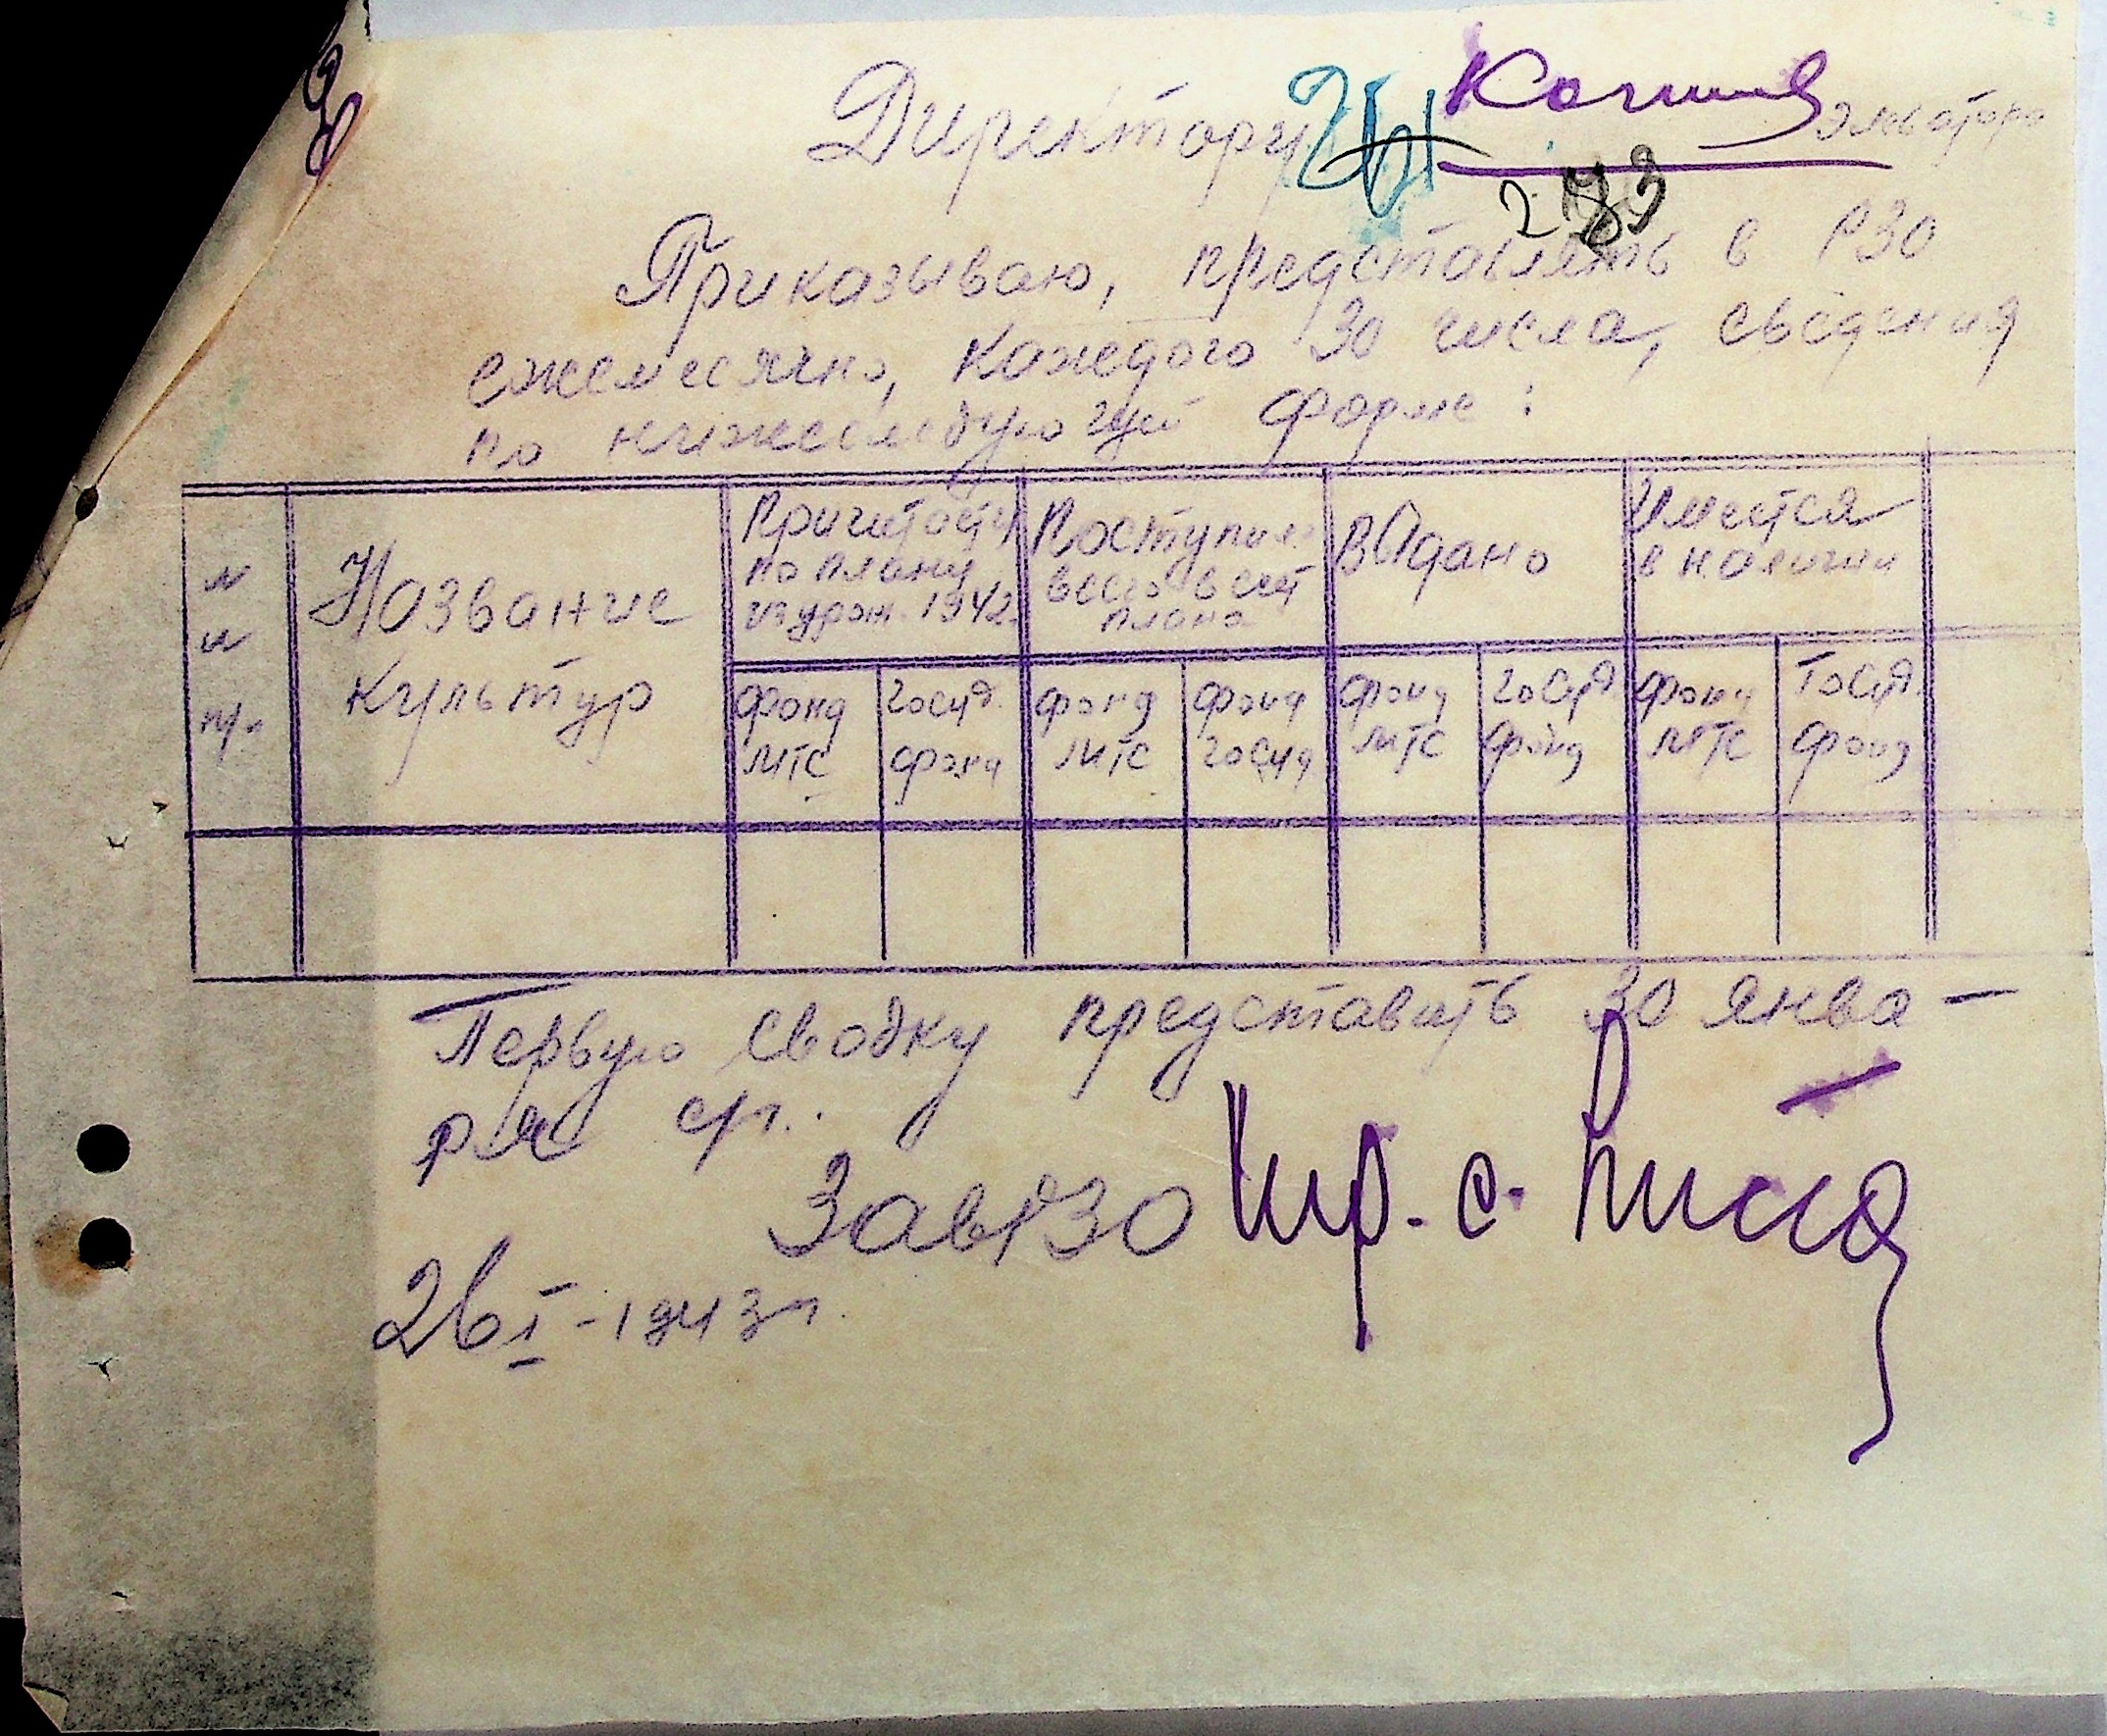 Директору элеватора
283
Приказываю, представлять в РЗО
ежемесячно, каждого 30 числа, сведения
по нижеследующей форме:
Название культур
Причитается по плану из урож. 1942
Поступило всего в счет плана
Выдано
Имеется в наличии
фонд МТС
госуд. фонд
фонд МТС
фонд госуд
фонд МТС
госуд фонд
фонд МТС
Госуд. фонд
Первую сводку представить 30 янва-
ря с/г.
ЗавРЗО
26 I - 1943 г.